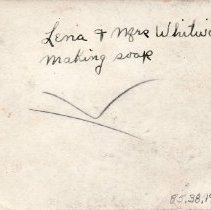 Lena + Mrs Whitwo
making soap
85.38.19